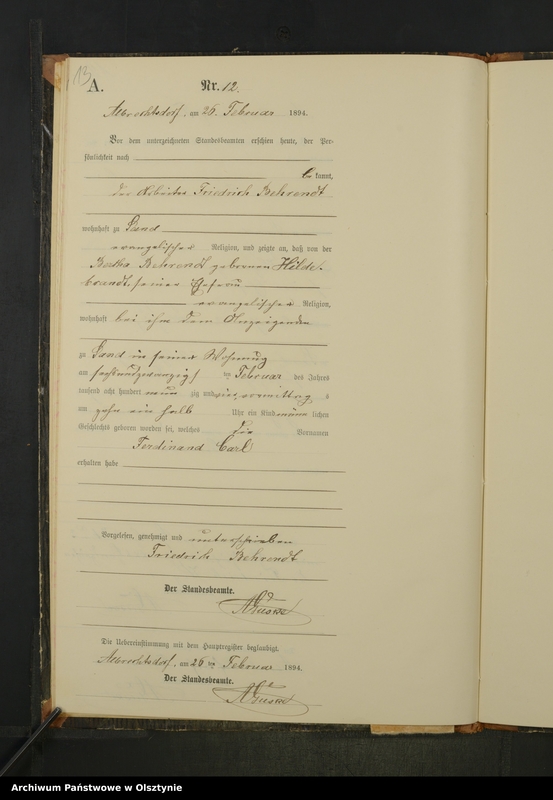 13
A.
Nr. 12.
Albrechtsdorf, am 26. Februar 1894.
Vor dem unterzeichneten Standesbeamten erschien heute, der Per-
sönlichkeit nach
be kannt,
der Arbeiter Friedrich Behrendt
wohnhaft zu Sand
evangelischer Religion, und zeigte an, daß von der
Bertha Behrendt geborenen Hilde-
brandt, seiner Ehefrau
evangelischer Religion,
wohnhaft bei ihm dem Anzeigenden
zu Sand in seiner Wohnung
am sechsundzwanzigsten Februar des Jahres
tausend acht hundert neun zig und vier vormittag s
um zehn ein halb Uhr ein Kind männ lichen
Geschlechts geboren worden sei, welches die Vornamen
Ferdinand Carl
erhalten habe
Vorgelesen, genehmigt und unterschrieben
Friedrich Behrendt
Der Standesbeamte.
Die Uebereinstimmung mit dem Hauptregister beglaubigt.
Albrechtsdorf, am 26 ten Februar 1894.
Der Standesbeamte.
Archiwum Państwowe w Olsztynie